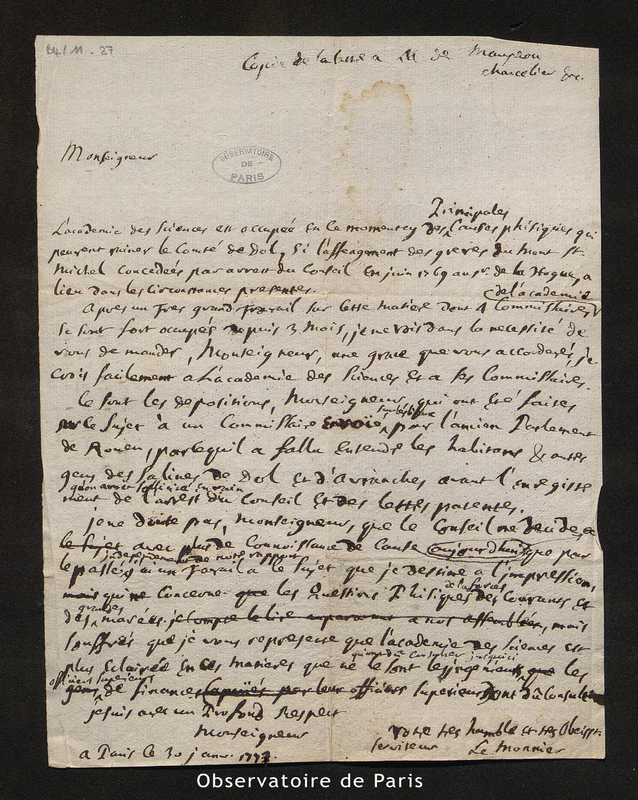 B4/11-27
Copie de la lettre a M. de Maupeou
chancelier &c.
Monseigneur
OBSERVATOIRE
DE
PARIS
Principales
L'academie des Sciences est occupée en ce moment cy des Causes phisiques qui
peuvent ruiner le Comté de Dol, Si l'affeagement des greves du Mont St
Michel Concedées par arrest du Conseil En juin 1769 au Sr. de la Hogue, a
lieu dans les Circonstances presentes.
de l'academie
Apres un Tres grand Travail sur Cette matiere dont 4 Commissaires
Se sont fort occupés depuis 3 Mois, je me vois dans la necessité de
vous demander, Monseigneur, une grace que vous accorderés, je
Crois facilement a L'academie des Sciences Et a Ses Commissaires.
Ce sont les depositions, Monseigneur, qui ont été faites
sur le Sujet à un Commissaire envoié par l'ancien Parlement
de Rouen, par lequel il a fallu Entendre les habitans & autres
gens des Salines de Dol Et d'avranches avant l'enregistre
ment de l'arrest du Conseil Et des lettres patentes.
je ne doute pas, Monseigneur, que le Conseil ne
le Sujet avec plus de Connoissance de Cause aujourd'hui que par
independamment de notre rapport
le passé; j'ai un Travail a ce Sujet que je destine a l'impression,
mais qui ne Concerne que les Questions Phisiques des Courants et
grandes
des marées. je compte le lire a nos assemblées, mais
Souffrés que je vous represente que l'academie des Sciences est
plus Eclairée En Ces matieres que ne le sont les ingenieurs que les
gens de finances officiers Superieurs
officiers superieurs
je suis avec un Profond Respect
Monseigneur
votre tres humble et tres Obeisst.
serviteur Le Monnier
a Paris le 30 janv. 1773
Observatoire de Paris